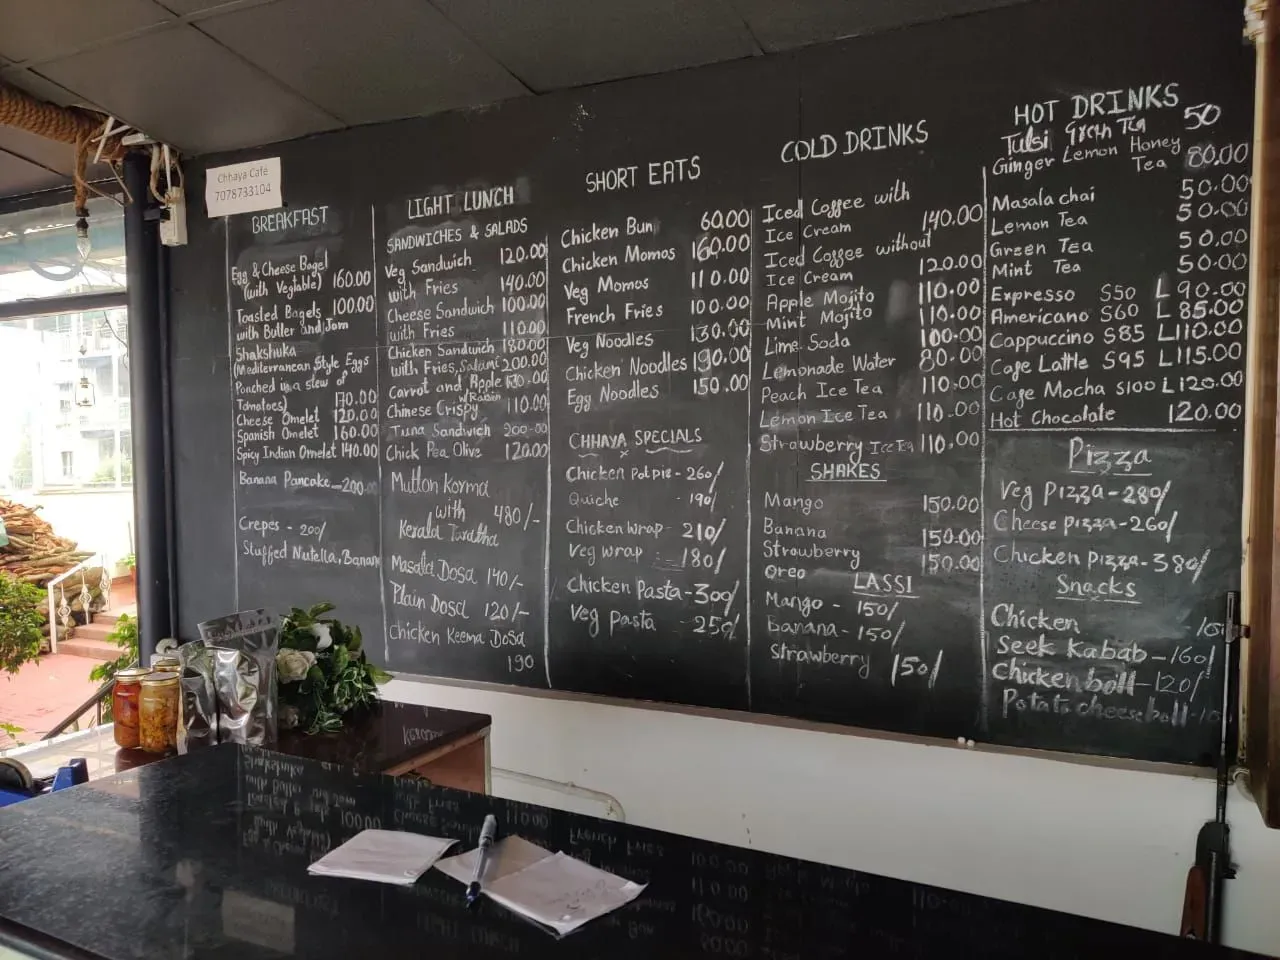 Chhaya Café
7078733104
BREAKFAST
Egg & Cheese Bagel
(with Vegtable) 160.00
Toasted Bagels 100.00
with Butter and Jam
Shakshuka
(Mediterranean Style Eggs
Poached in a stew of
Tomatoes) 170.00
Cheese Omelet 120.00
Spanish Omelet 160.00
Spicy Indian Omelet 140.00
Banana Pancake - 200
Crepes - 200/
Stuffed Nutella, Banana
LIGHT LUNCH
SANDWICHES & SALADS
Veg Sandwich 120.00
with Fries 140.00
Cheese Sandwich 100.00
with Fries 110.00
Chicken Sandwich 180.00
with Fries, Salami 200.00
Carrot and Apple
w/Raisin
Chinese Crispy 110.00
Tuna Sandwich 200.00
Chick Pea Olive 120.00
Mutton Korma
with 480/-
Kerala
Masala Dosa 140/-
Plain Dosa 120/-
Chicken Keema Dosa
190
SHORT EATS
Chicken Bun 60.00
Chicken Momos 160.00
Veg Momos 110.00
French Fries 100.00
Veg Noodles 130.00
Chicken Noodles 190.00
Egg Noodles 150.00
CHHAYA SPECIALS
Chicken Potpie - 260/
Quiche - 190/
Chicken wrap - 210/
Veg wrap - 180/
Chicken Pasta - 300/
Veg Pasta - 250/
COLD DRINKS
Iced Coffee with
Ice Cream 140.00
Iced Coffee without
Ice Cream 120.00
Apple Mojito 110.00
Mint Mojito 110.00
Lime Soda 100.00
Lemonade Water 80.00
Peach Ice Tea 110.00
Lemon Ice Tea 110.00
Strawberry Ice Tea 110.00
SHAKES
Mango 150.00
Banana 150.00
Strawberry 150.00
Oreo
LASSI
Mango - 150/
banana - 150/
Strawberry 150/
HOT DRINKS
Tulsi Green Tea 50
Ginger Lemon Honey
Tea 80.00
Masala chai 50.00
Lemon Tea 50.00
Green TEa 50.00
Mint Tea 50.00
Expresso S50 L 90.00
Americano S60 L 85.00
Cappuccino S85 L110.00
Cafe Latte S95 L115.00
Cafe Mocha S100 L120.00
Hot Chocolate 120.00
Pizza
Veg Pizza - 280/
Cheese pizza - 260/
Chicken Pizza - 380/
Snacks
Chicken
Seek Kabab - 160/
Chicken boll - 120/
Potato cheese boll -